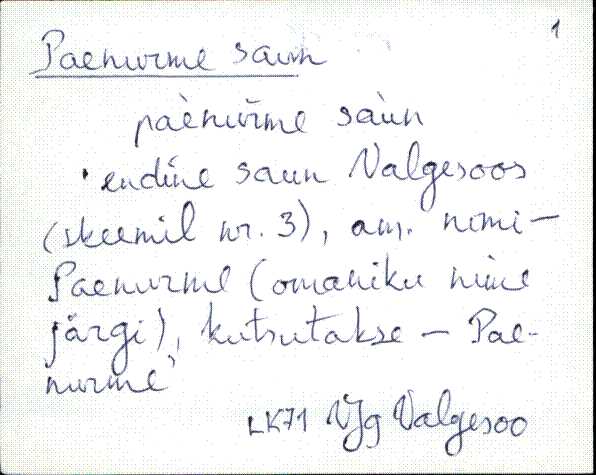 1
Paenurme saun
pàenuřme sàun
'endine saun Valgesoos
(skeemil nr. 3), am. nimi –
Paenurme (omaniku nime
järgi), kutsutakse – Pae-
nurme'
LK71 VJg Valgesoo